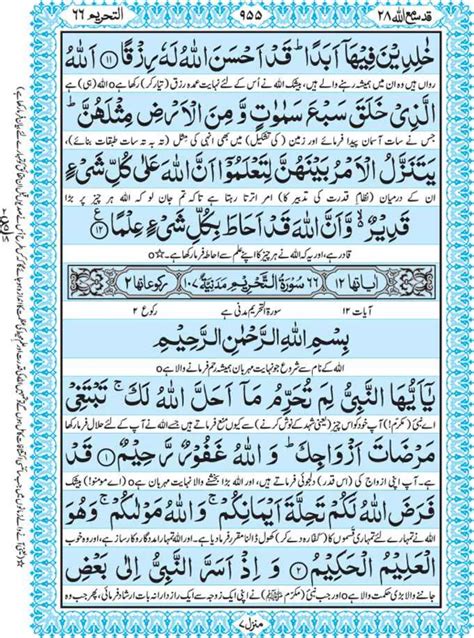 التحريم ٦٦ ٩٥٥ قد سمع الله ٢٨
خٰلِدِيْنَ فِيْهَاۤ اَبَدًا ؕ قَدْ اَحْسَنَ اللّٰهُ لَهٗ رِزْقًا ﴿۱۱﴾ اَللّٰهُ
رواں ہیں وہ ان میں ہمیشہ رہنے والے ہیں، بیشک اللہ نے اُس کے لئے نہایت عمدہ رزق (تیار کر) رکھا ہے o اللہ (ہی) ہے
الَّذِيْ خَلَقَ سَبْعَ سَمٰوٰتٍ وَّ مِنَ الْاَرْضِ مِثْلَهُنَّ ؕ
جس نے سات آسمان پیدا فرمائے اور زمین (کی تشکیل) میں بھی انہی کی مثل (تہ بہ تہ سات طبقات بنائے)،
يَتَنَزَّلُ الْاَمْرُ بَيْنَهُنَّ لِتَعْلَمُوْۤا اَنَّ اللّٰهَ عَلٰى كُلِّ شَيْءٍ
ان کے درمیان (نظامِ قدرت کی تدبیر کا) امر اترتا رہتا ہے تاکہ تم جان لو کہ اللہ ہر چیز پر بڑا
قَدِيْرٌ ۙ وَّ اَنَّ اللّٰهَ قَدْ اَحَاطَ بِكُلِّ شَيْءٍ عِلْمًا ﴿۱۲﴾ ع
قادر ہے، اور یہ کہ اللہ نے ہر چیز کا اپنے علم سے احاطہ فرما رکھا ہے o
اٰیاتها ١٢ ٦٦ سُوْرَةُ التَّحْرِيْمِ مَدَنِيَّةٌ ١٠٧ رکوعاتها ٢
آیات ١٢ سورۃ التحریم مدنی ہے رکوع ٢
بِسْمِ اللّٰهِ الرَّحْمٰنِ الرَّحِيْمِ
اللہ کے نام سے شروع جو نہایت مہربان ہمیشہ رحم فرمانے والا ہے
يٰۤاَيُّهَا النَّبِيُّ لِمَ تُحَرِّمُ مَاۤ اَحَلَّ اللّٰهُ لَكَ ۚ تَبْتَغِيْ
اے نبیِ (مکرّم!) آپ خود کو اس چیز (یعنی شہد کے نوش کرنے) سے کیوں منع فرماتے ہیں جسے اللہ نے آپ کے لئے حلال فرما رکھا
مَرْضَاتَ اَزْوَاجِكَ ؕ وَ اللّٰهُ غَفُوْرٌ رَّحِيْمٌ ﴿۱﴾ قَدْ
ہے۔ آپ اپنی ازواج کی (اس قدر) دلجوئی فرماتے ہیں، اور اللہ بڑا بخشنے والا نہایت مہربان ہے o (اے مومنو!) بیشک
فَرَضَ اللّٰهُ لَكُمْ تَحِلَّةَ اَيْمَانِكُمْ ۚ وَ اللّٰهُ مَوْلٰىكُمْ ۚ وَهُوَ
اللہ نے تمہارے لئے تمہاری قَسموں کا (کفارہ دے کر) کھول ڈالنا مقرر فرما دیا ہے، اور اللہ تمہارا مددگار و کارساز ہے، اور وہ
الْعَلِيْمُ الْحَكِيْمُ ﴿۲﴾ وَ اِذْ اَسَرَّ النَّبِيُّ اِلٰى بَعْضِ
خوب جاننے والا بڑی حکمت والا ہے o اور جب نبیِ (مکرّم ﷺ) نے اپنی ایک زوجہ سے ایک رازدارانہ بات ارشاد فرمائی، پھر جب وہ
منزل ٧